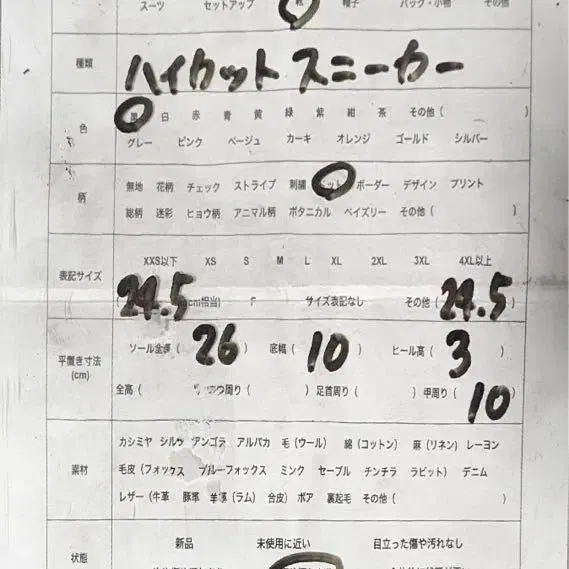 スーツ セットアップ 靴 帽子 バッグ・小物 その他
種類 ハイカット スニーカー
色 黒 白 赤 青 黄 緑 紫 紺 茶 その他 ( )
グレー ピンク ベージュ カーキ オレンジ ゴールド シルバー
柄 無地 花柄 チェック ストライプ 刺繍 ドット ボーダー デザイン プリント
総柄 迷彩 ヒョウ柄 アニマル柄 ボタニカル ペイズリー その他 (
表記サイズ XXS以下 XS S M L XL 2XL 3XL 4XL以上
( 24.5 cm相当) F サイズ表記なし その他 ( 24.5 )
平置き寸法 (cm) ソール全長 ( 26 ) 底幅 ( 10 ) ヒール高 ( 3 )
全高 ( 周り ( ) 足首周り ( ) 甲周り ( 10 )
素材 カシミヤ シルク アンゴラ アルパカ 毛 (ウール) 綿 (コットン) 麻 (リネン) レーヨン
毛皮 (フォックス ブルーフォックス ミンク セーブル チンチラ ラビット) デニム
レザー (牛革 豚革 羊革 (ラム) 合皮) ボア 裏起毛 その他 ( )
状態 新品 未使用に近い 目立った傷や汚れなし